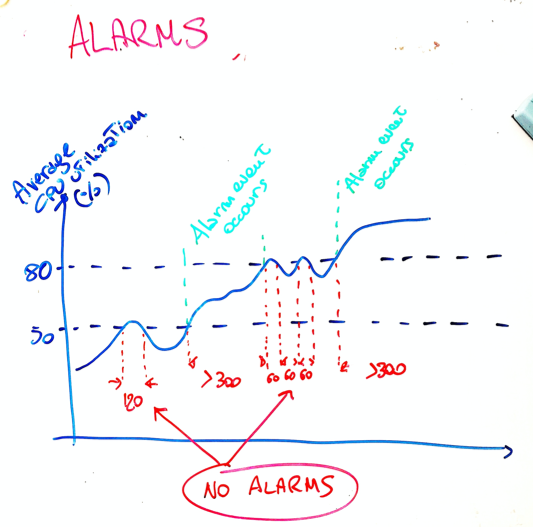 ALARMS
Average
CPU utilization
(%)
Alarm event
occurs
Alarm event
occurs
80
50
120
>300
60 60 60
>300
NO ALARMS